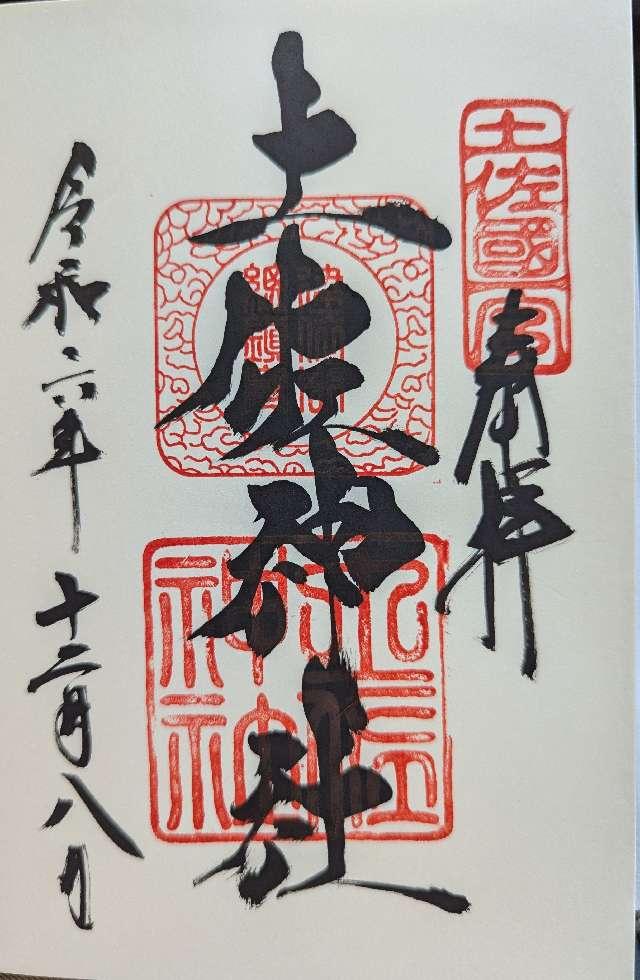 土佐國一宮
奉拝
土佐神社
令和六年 十二月八日